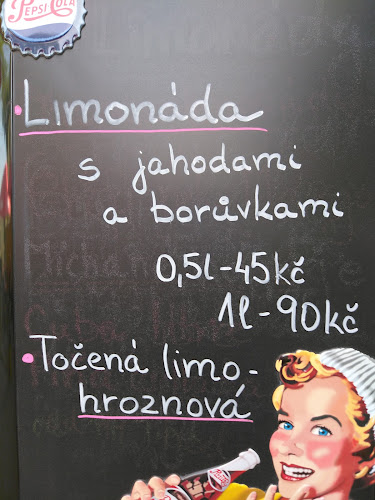 PEPSI-COLA
Limonáda
s jahodami
a borůvkami
0,5l-45kč
1l-90kč
Točená limo-
hroznová